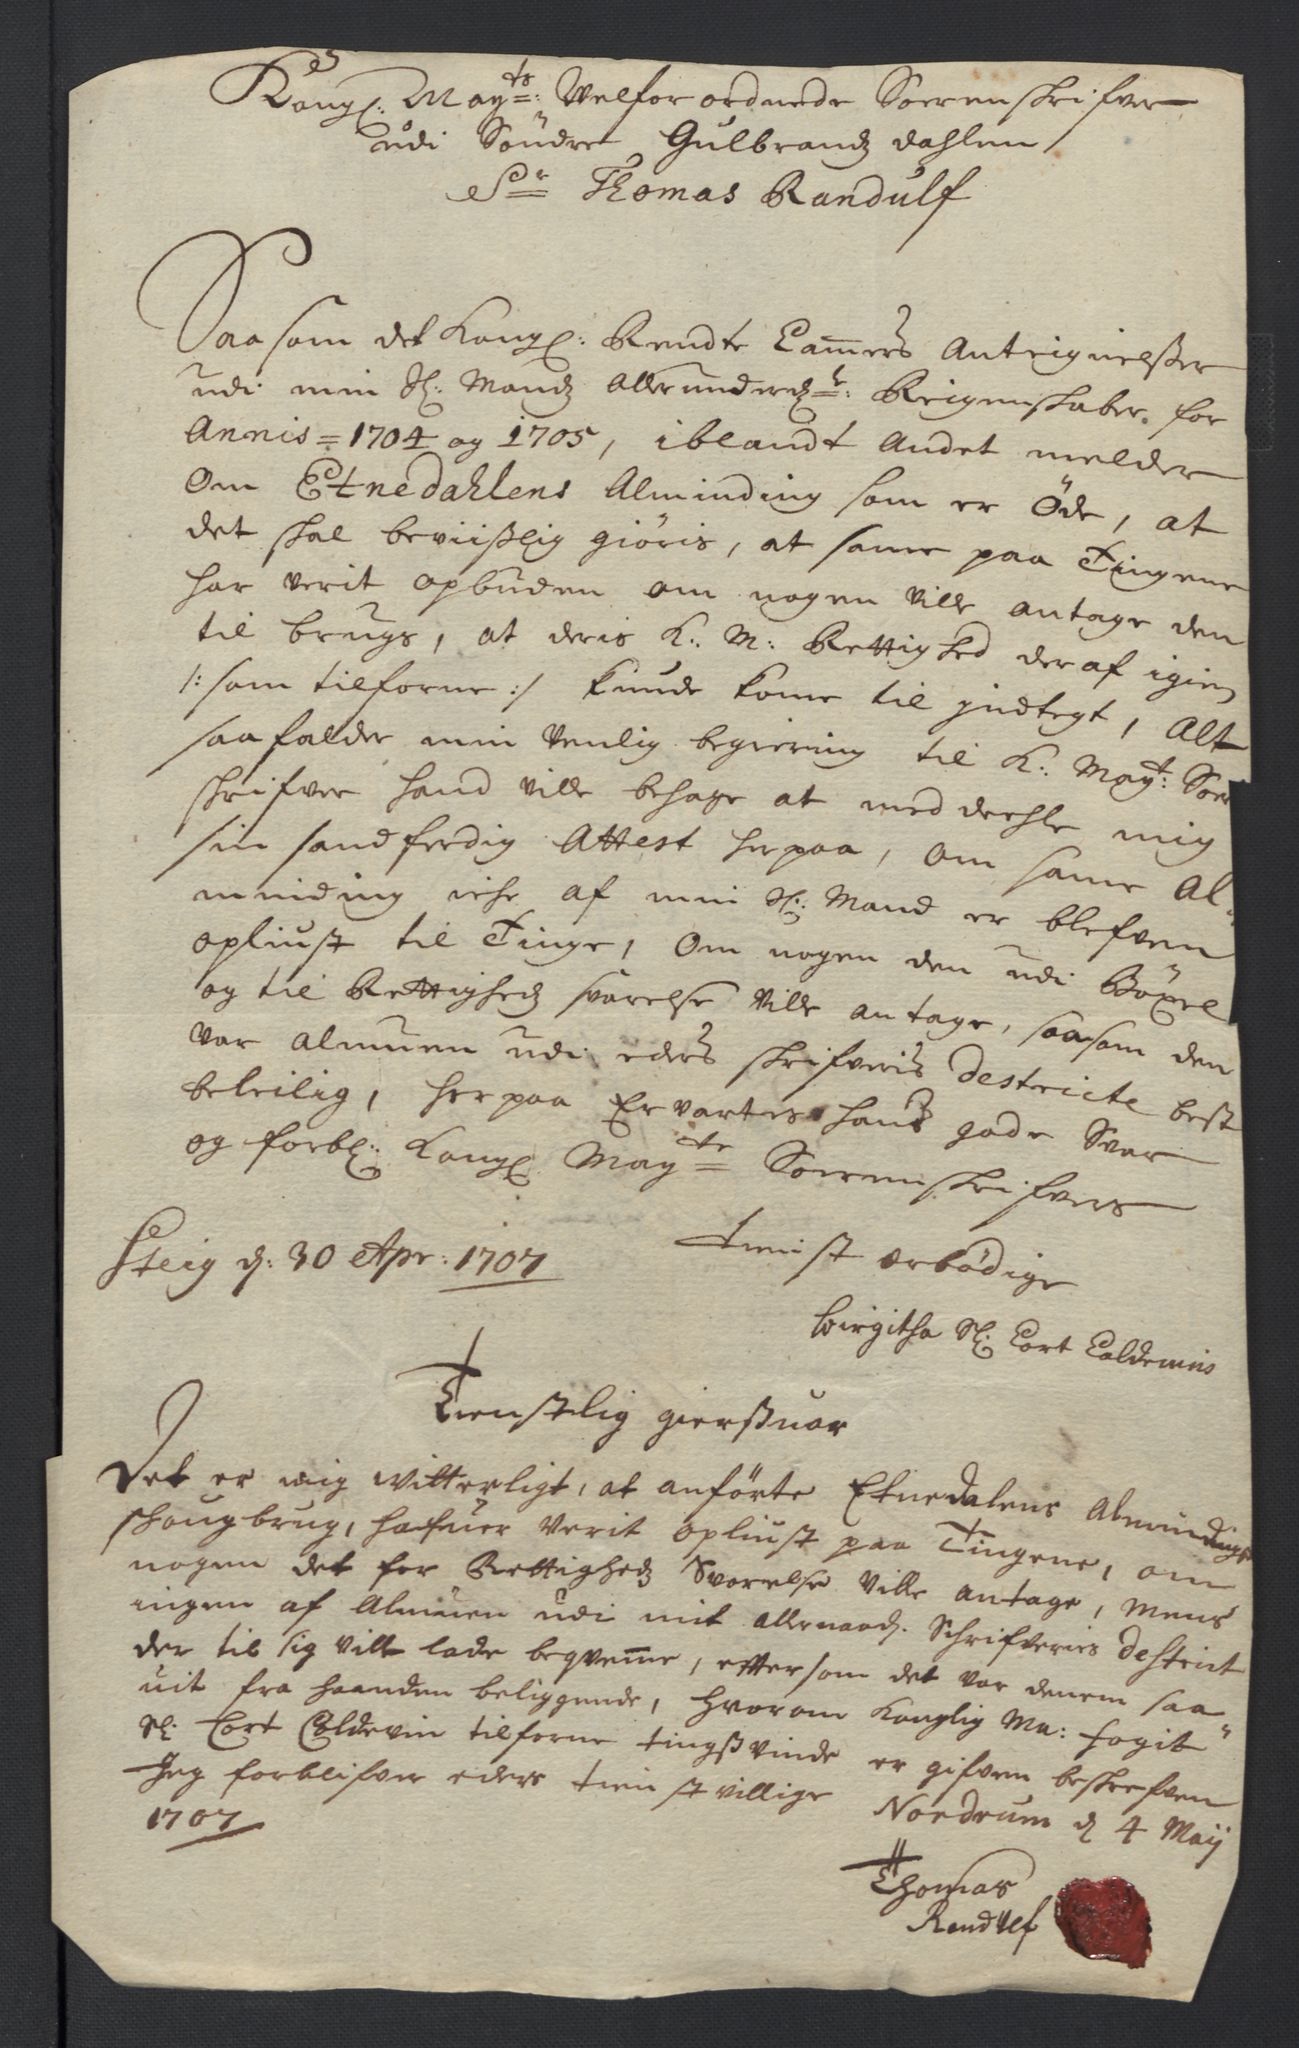 Kongl: May.ts: Welforordnede Sorenskrifver
udi Söndre Gulbrandz dahlen
Sr Thomas Randulf
Saasom det Kongl: Rendte Cammers Anteignelßer
udi min Sl: Mandz allerunderd.e: Reigenskaber for
Annis = 1704 og 1705, iblandt Andet melder
Om Etnedahlens Alminding som er Öde, at
det skal beviißlig giöris, at same paa Tingene
har verit opbuden om nogen ville antage den
til brugs, at deris K: M: Rettighed deraf igien
/: som tilforne :/ kunde kome til indtegt, Alt
saa falder min venlig begiering til K: May.t: Soren
skrifver hand ville behage at meddeehle mig
sin sandferdig Attest herpaa, om same Al-
minding iche af min Sl: Mand er blefven
opliust til Tinge, Om nogen den udi Böxel
og til Rettighedz svarelse ville antage, saasom den
var almuen udi eders skrifveris destricte best
beleilig, herpaa Ervartes hans gode Svar
og forbl: Kongl May.ts Sorenskrifvers
Steig d: 30 Apr: 1707
tienist ærbödige
birgitha Sl: Cort Coldewins
Tienstlig gienßuar
Det er mig witterligt, at anförte Etnedalens Almindings
skoug brug, hafuer verit opliust paa Tingene, om
nogen det for Rettighedz Svarelse ville antage, mens
ingen af Almuen udi mit allernaad. Schrifveries destrict
der til sig vilt lade beqvemme, effter som det var denem saa
uit fra haanden beliggende, hvorom Konglig Ma: fogit
Sl: Cort Coldevin tilforne tingßvinde er gifven beskrefven
Jeg forblifver eders tienstvillige Nordrum d 4 Maij
1707
Thomas
Randulf